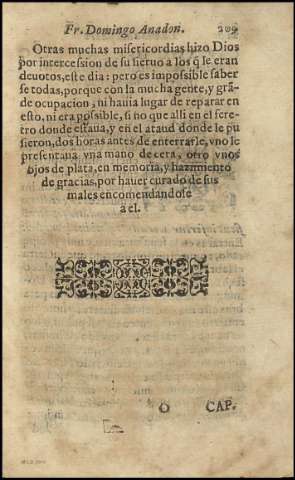 Fr. Domingo Anadon. 209
Otras muchas misericordias hizo Dios
por intercession de su sieruo a los q̃ le eran
deuotos, este dia: pero es impossible saber
se todas, porque con la mucha gente, y grã-
de ocupacion, ni hauia lugar de reparar en
esto, ni era possible, si no que alli en el fere-
tro donde estaua, y en el ataud donde le pu
sieron, dos horas antes de enterrarle, vno le
presentaua vna mano de cera, otro vnos
ojos de plata, en memoria, y hazimiento
de gracias, por hauer curado de sus
males encomendandose
a el.
O CAP.